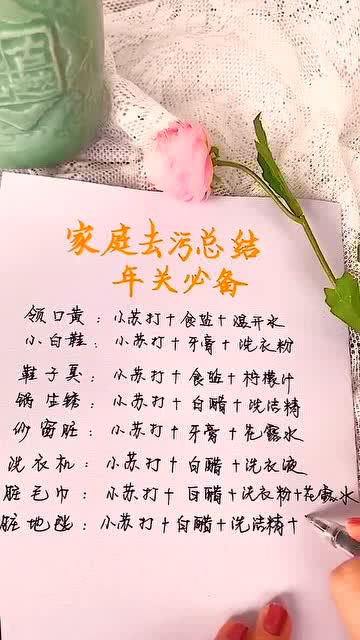 家庭去污总结
年关必备
领口黄：小苏打＋食盐＋温开水
小白鞋：小苏打＋牙膏＋洗衣粉
鞋子臭：小苏打＋食盐＋柠檬汁
锅生锈：小苏打＋白醋＋洗洁精
纱窗脏：小苏打＋牙膏＋花露水
洗衣机：小苏打＋白醋＋洗衣液
脏毛巾：小苏打＋白醋＋洗衣粉＋花露水
脏地毯：小苏打＋白醋＋洗洁精＋